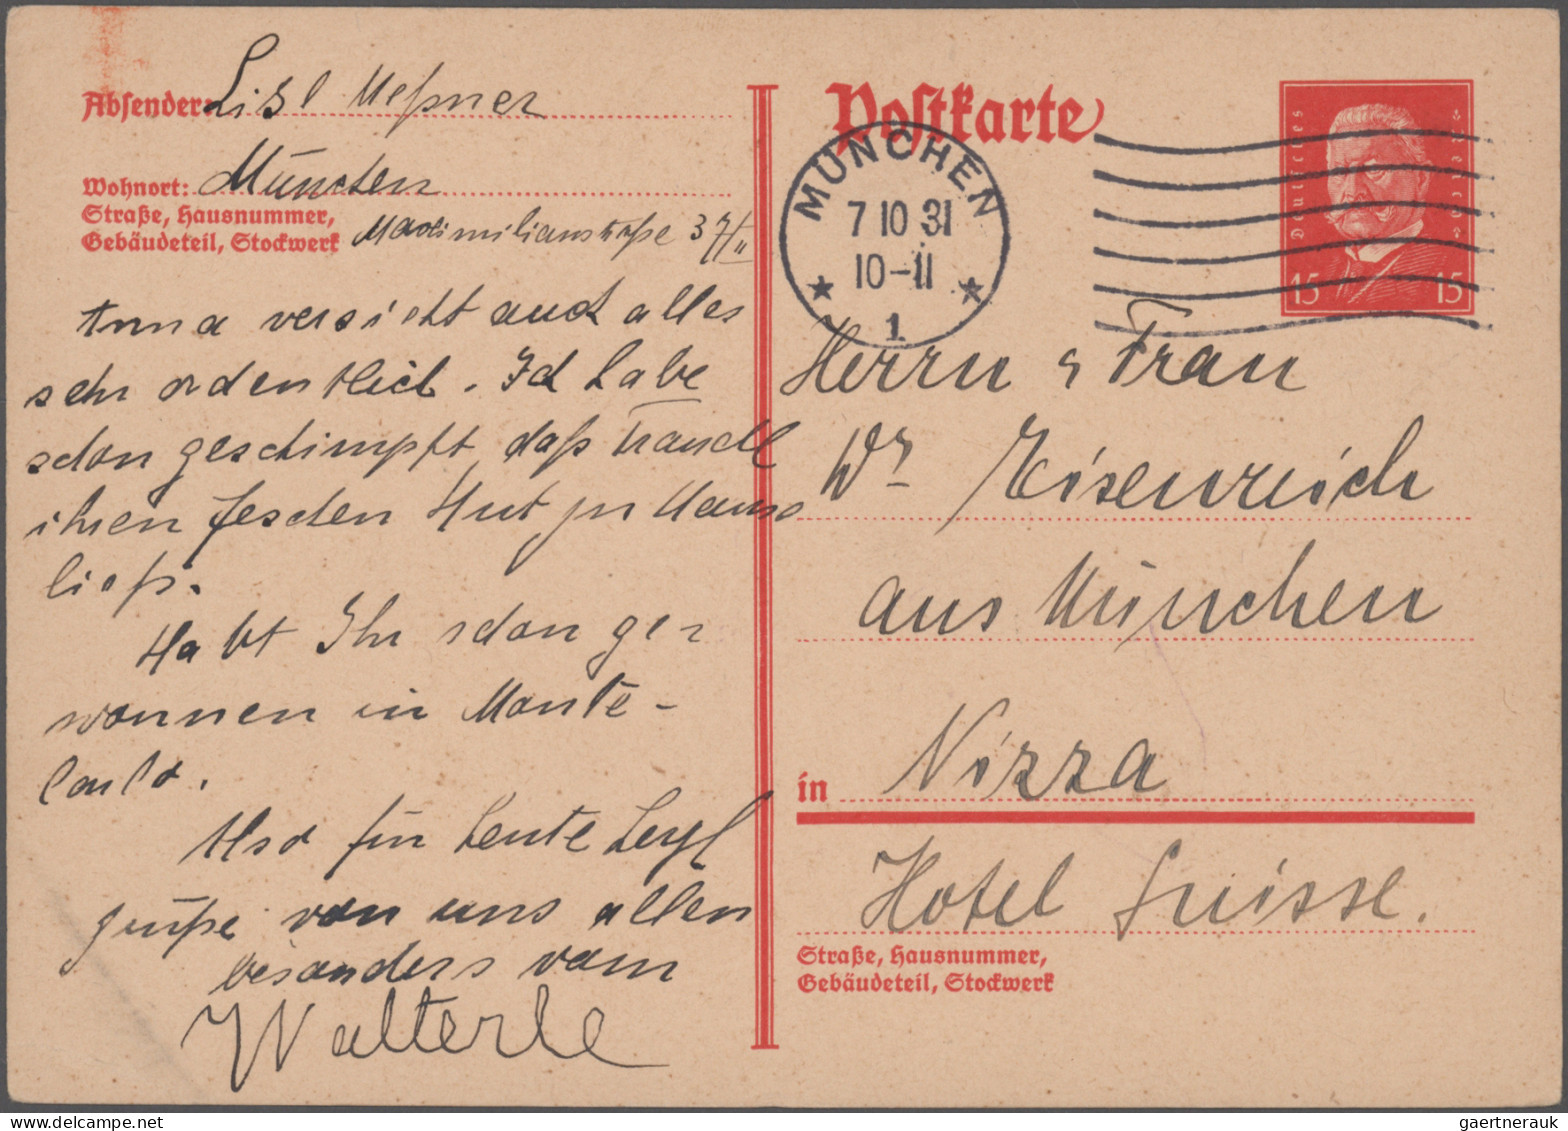 Absender: Lisl Meßner
Wohnort: München
Straße, Hausnummer,
Gebäudeteil, Stockwerk Maximilianstraße 37/II
Anna versieht auch alles
sehr ordentlich. Ich habe
schon geschimpft, daß Traudl
ihren feschen Hut zu Hause
ließ.
Habt Ihr schon ge-
wonnen in Monte-
Carlo.
Also für heute herzl
Grüße von uns allen
besonders vom
Walterle
Postkarte
MÜNCHEN
7 10 31
10-11
1
Deutsches Reich
15 15
Herrn & Frau
Dr Eisenreich
aus München
in Nizza
Hotel Suisse.
Straße, Hausnummer,
Gebäudeteil, Stockwerk
gaertnerauk @ delcampe.net